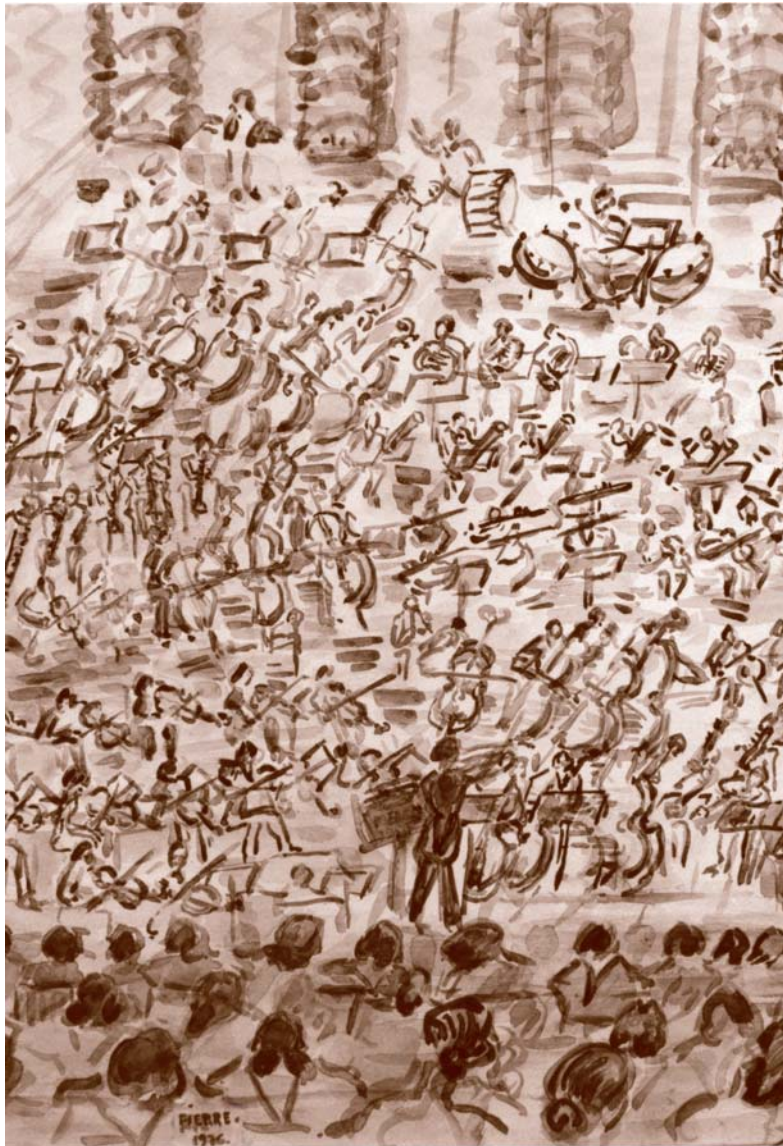 PIERRE.
1976.